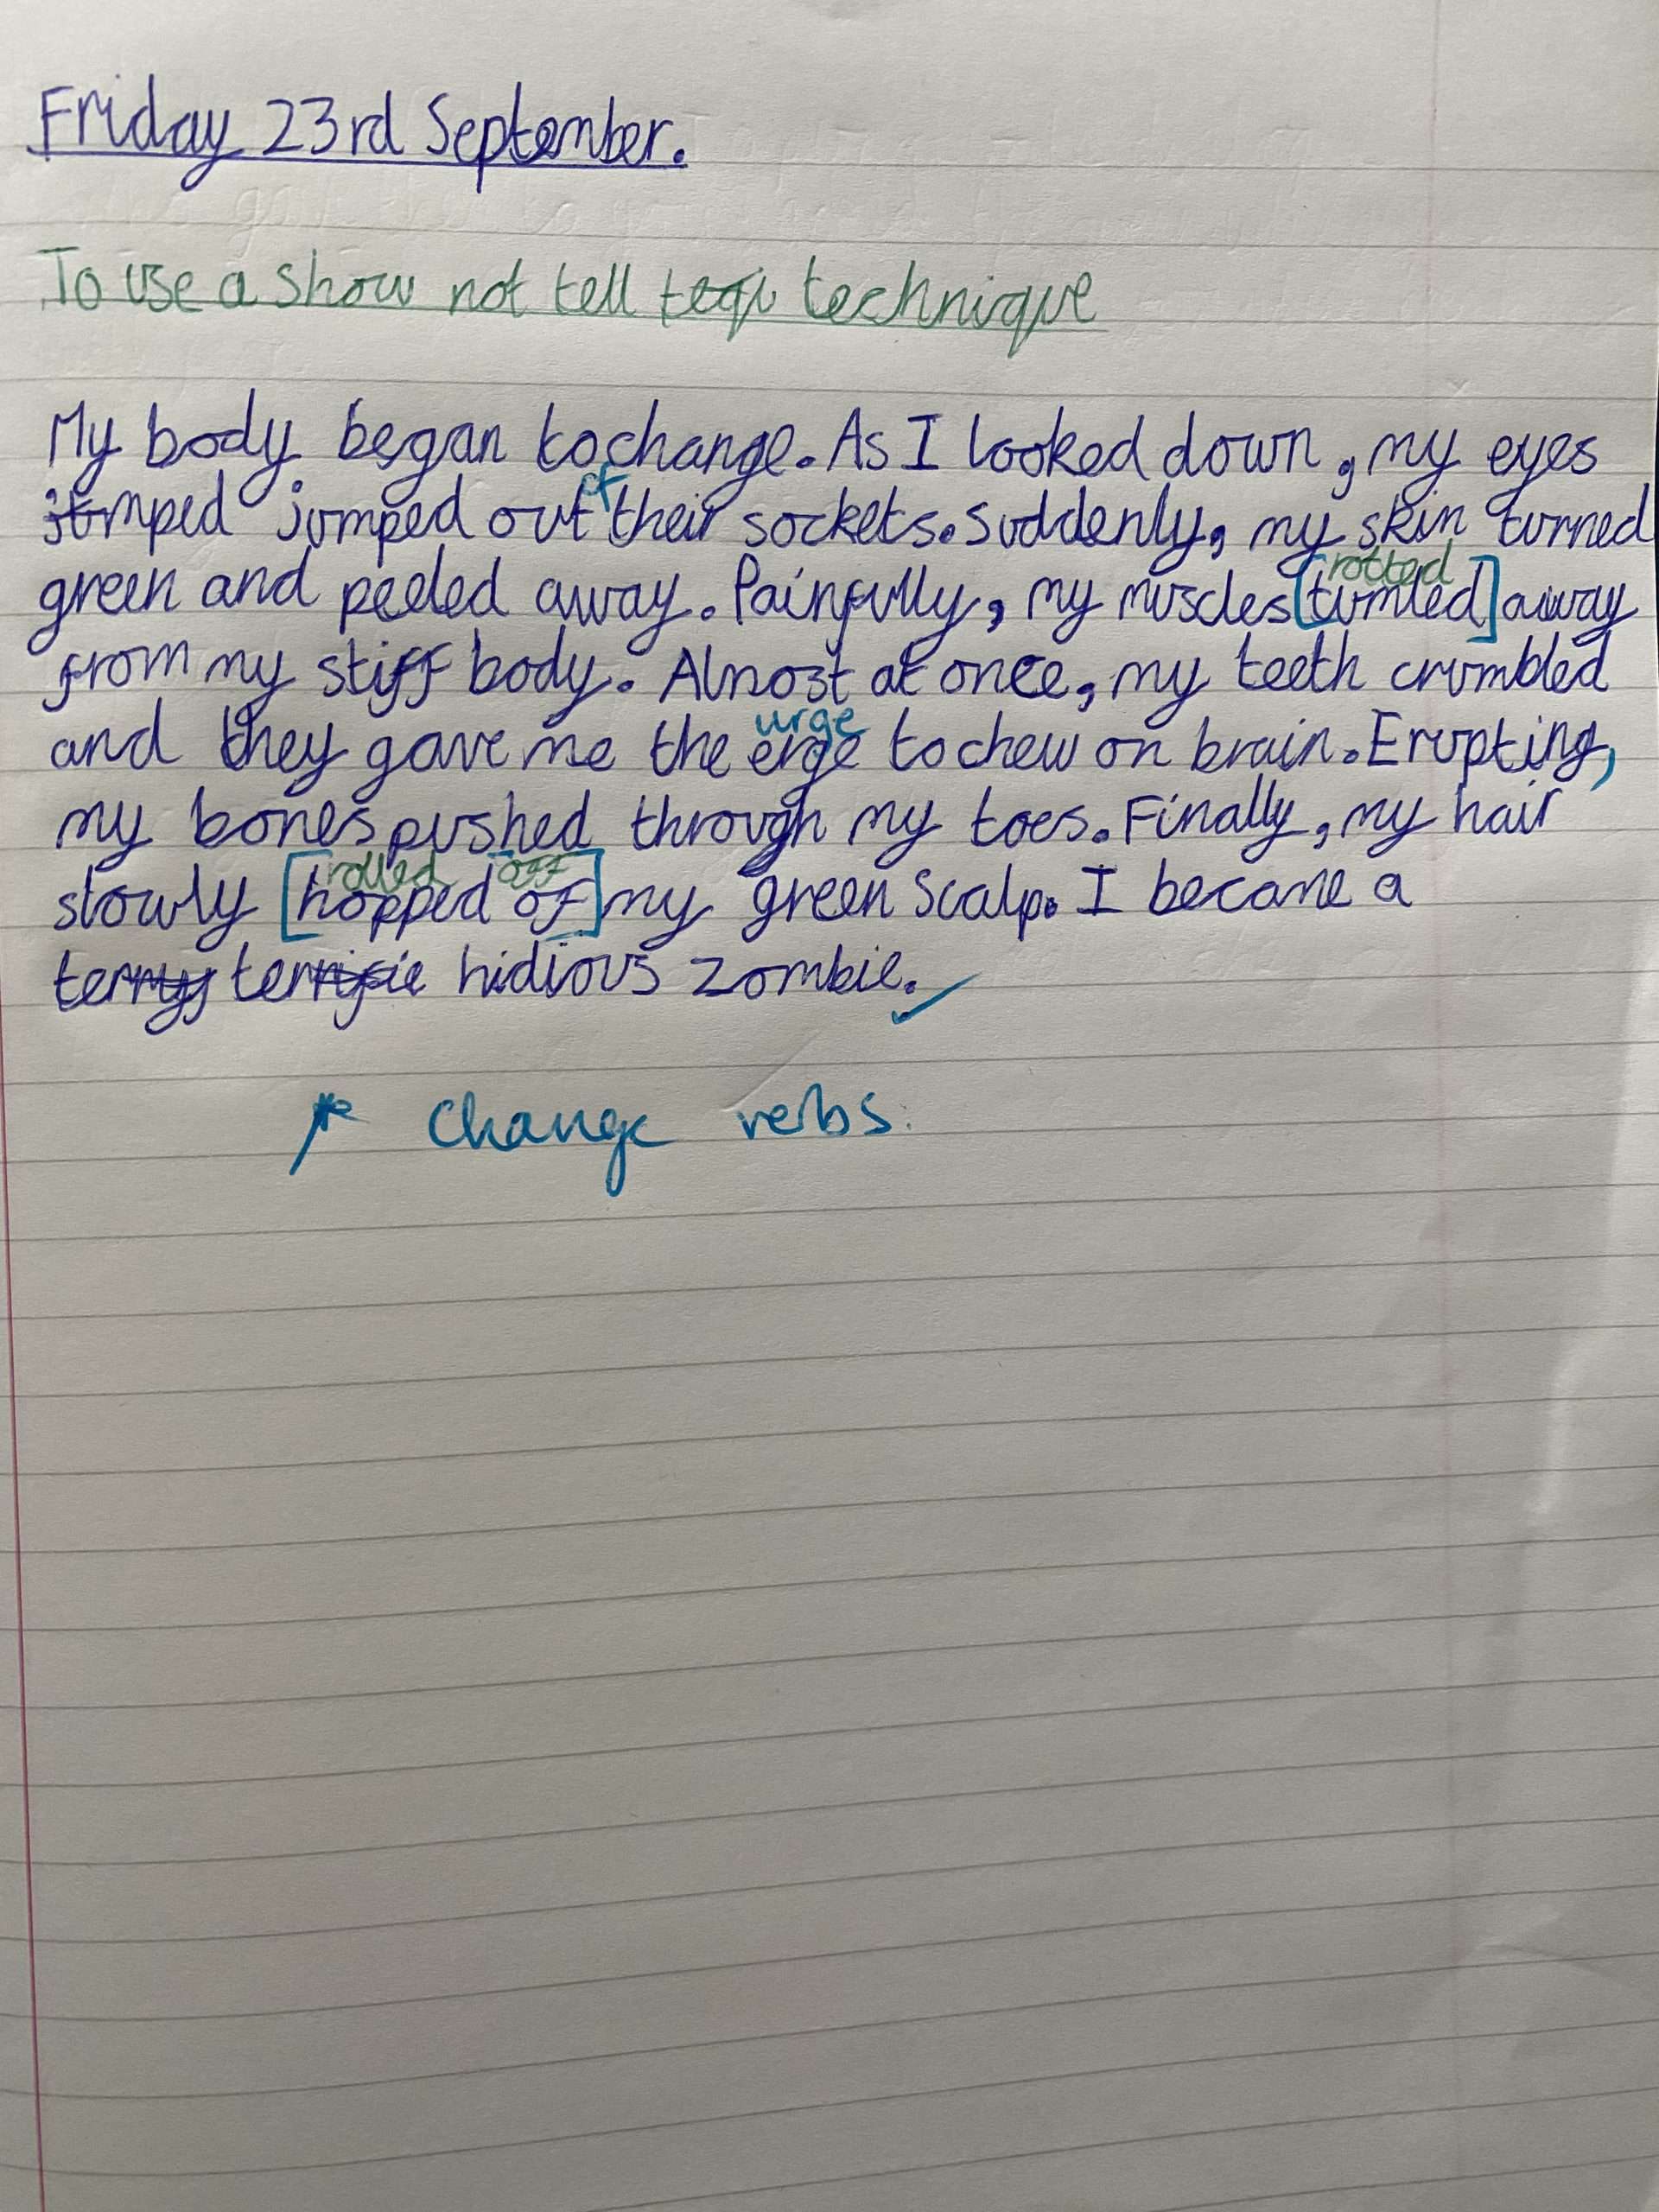 Friday 23rd September.
To use a show not tell teqi technique
My body began to change. As I looked down, my eyes
of
jumped jumped out their sockets. Suddenly, my skin turned
rotted
green and peeled away. Painfully, my muscles [tumled] away
from my stiff body. Almost at once, my teeth crumbled
urge
and they gave me the erge to chew on brain. Erupting,
my bones pushed through my toes. Finally, my hair
rolled off
slowly [hopped of] my green scalp. I became a
terryf terrifie hidious zombie.
* Change verbs.